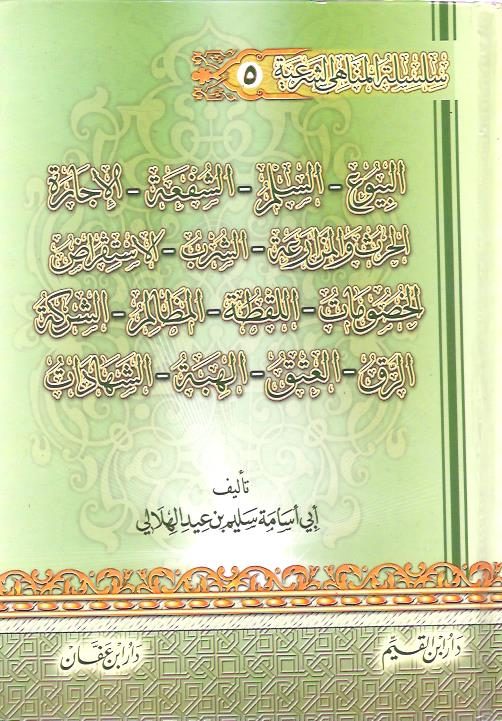 سلسلة المناهي الشرعية ٥
البيوع - السلم - الشفعة - الإجارة
الحرث والمزارعة - الشرب - الاستقراض
الخصومات - اللقطة - المظالم - الشركة
الرق - العتق - الهبة - الشهادات
تأليف
أبي أسامة سليم بن عيد الهلالي
دار ابن القيم
دار ابن عفان